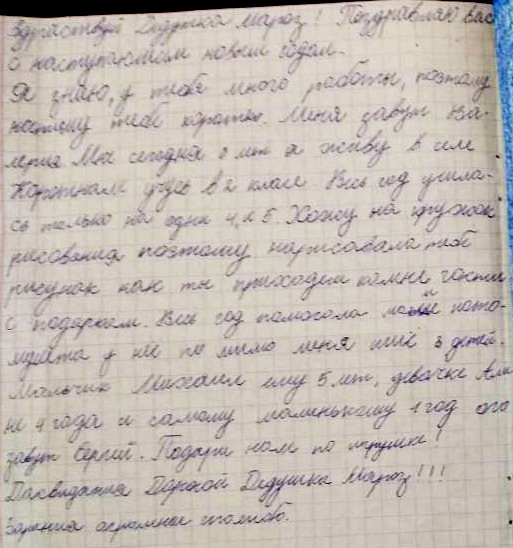 Здраствуй Дедушка Мароз! Поздравляю вас
с наступаюшим новым годом.
Я знаю, у тебя много работы, поэтому
напишу тебе коротко. Меня завут Ва-
лерия Мне сегодня 8 лет я живу в селе
учусь в 2 класе. Весь год училa-
сь только на одни 4, и 5. Хожу на кружок
рисования поэтому нарисовала тебе
рисунак как ты приходем камне гости
с подаркам. Весь год помогала маме пото-
мушта у неё по мимо меня ишё 3 детей.
Мальчик Михаил ему 5 лет, девочке Али
не 4 года и самому маленькому 1 год его
завут Сергей. Подари нам по игрушке!
Досвидания Дорогой Дедушка Мароз!!!
Зарания огромное спасибо.